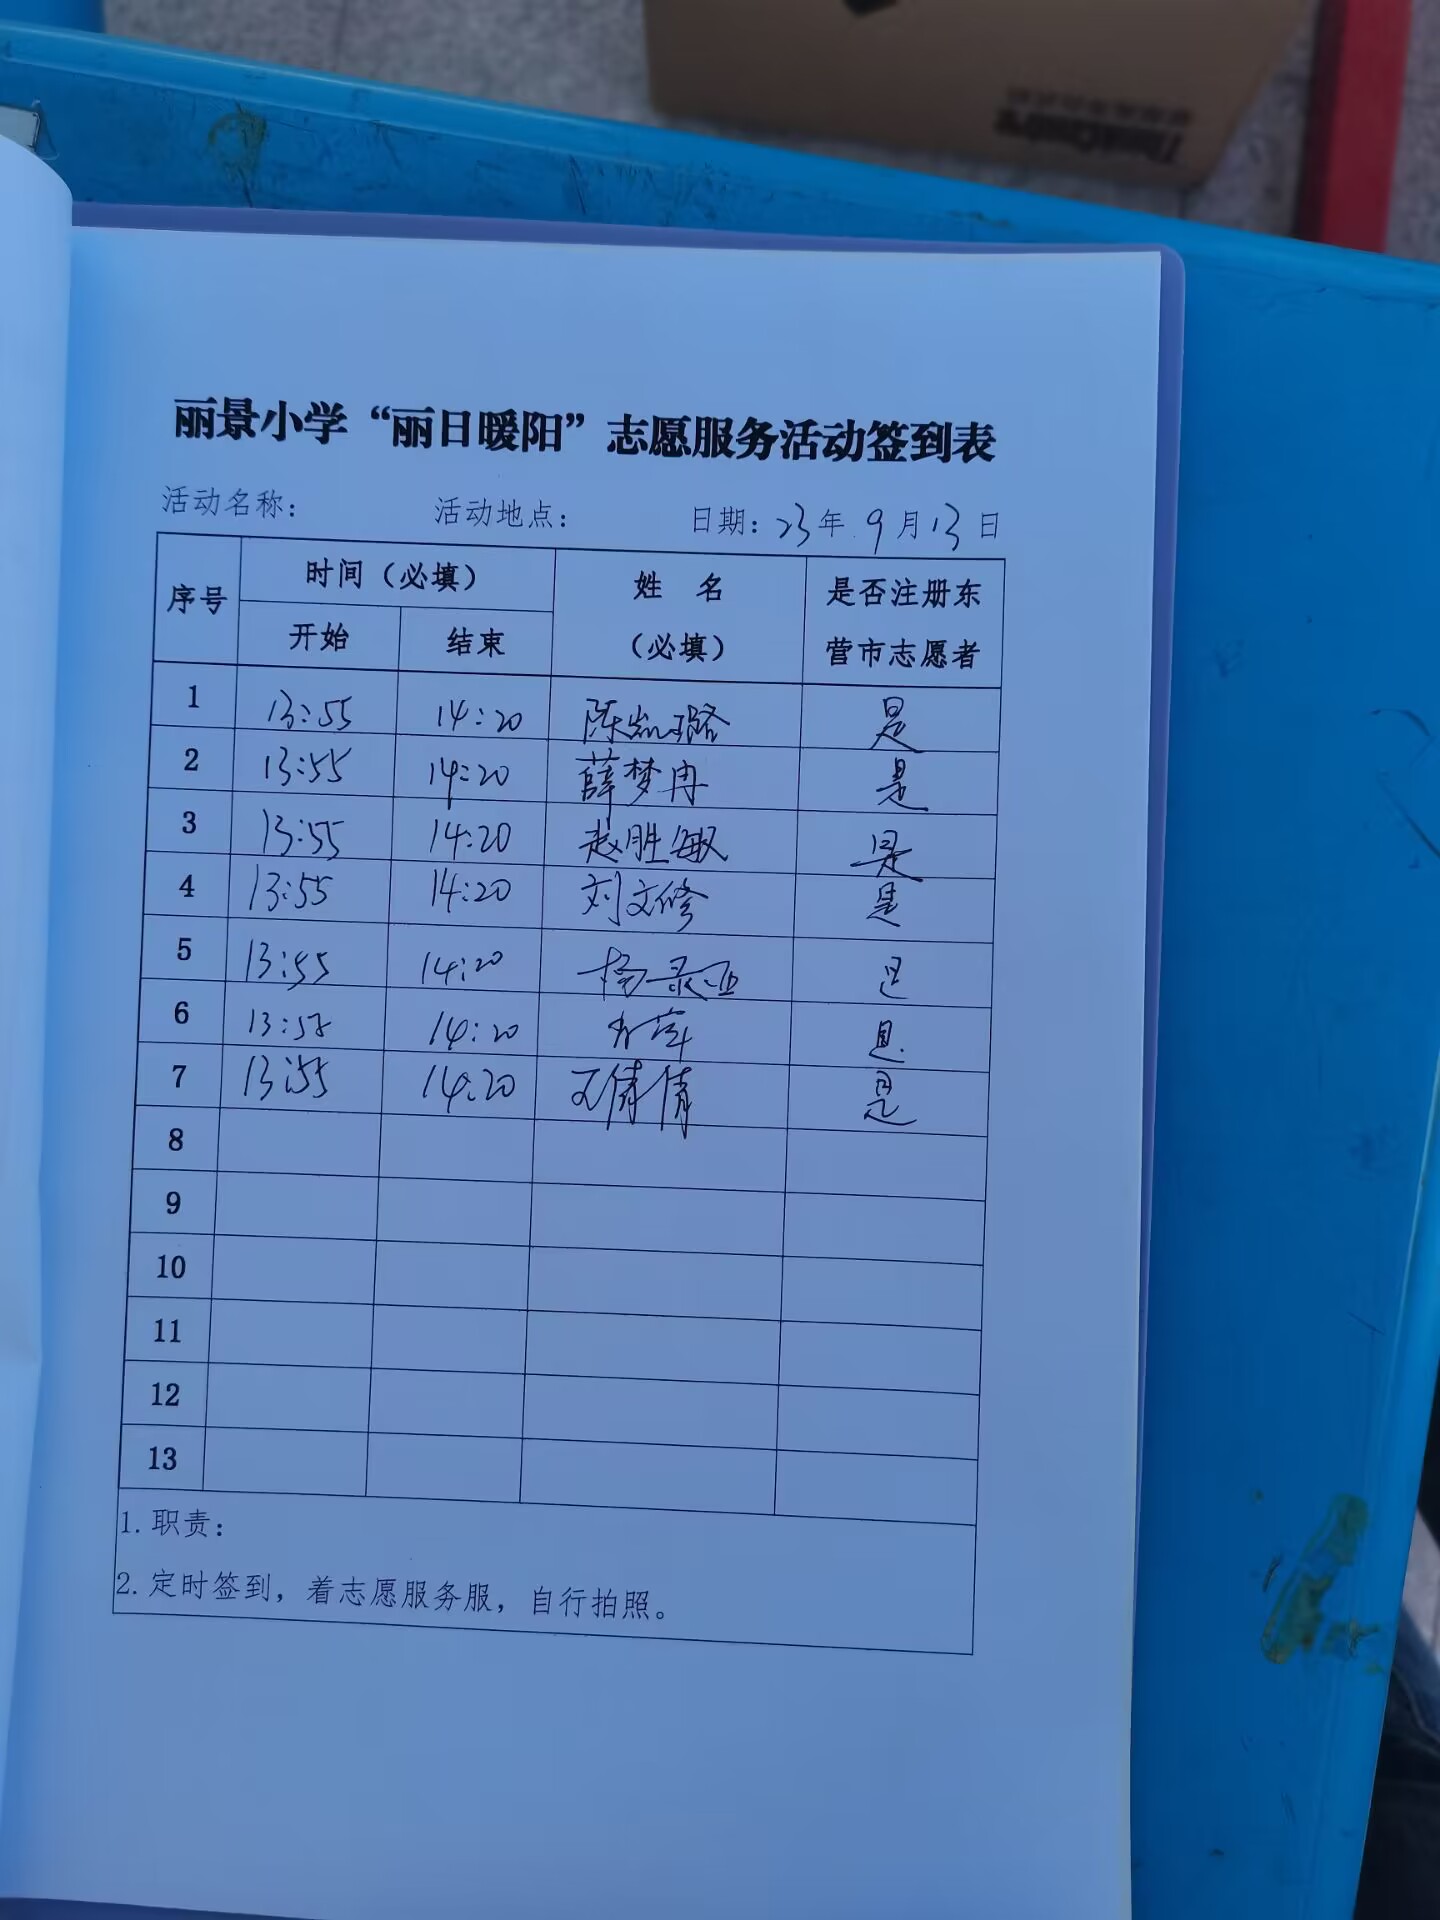 丽景小学“丽日暖阳”志愿服务活动签到表
活动名称： 活动地点： 日期：23年9月13日
序号 时间（必填） 姓 名（必填） 是否注册东营市志愿者
开始 结束
1 13:55 14:20 陈凯璐 是
2 13:55 14:20 薛梦冉 是
3 13:55 14:20 赵胜敏 是
4 13:55 14:20 刘文修 是
5 13:55 14:20 杨录亚 是
6 13:55 14:20 是
7 13:55 14:20 王倩倩 是
8
9
10
11
12
13
1.职责：
2.定时签到，着志愿服务服，自行拍照。